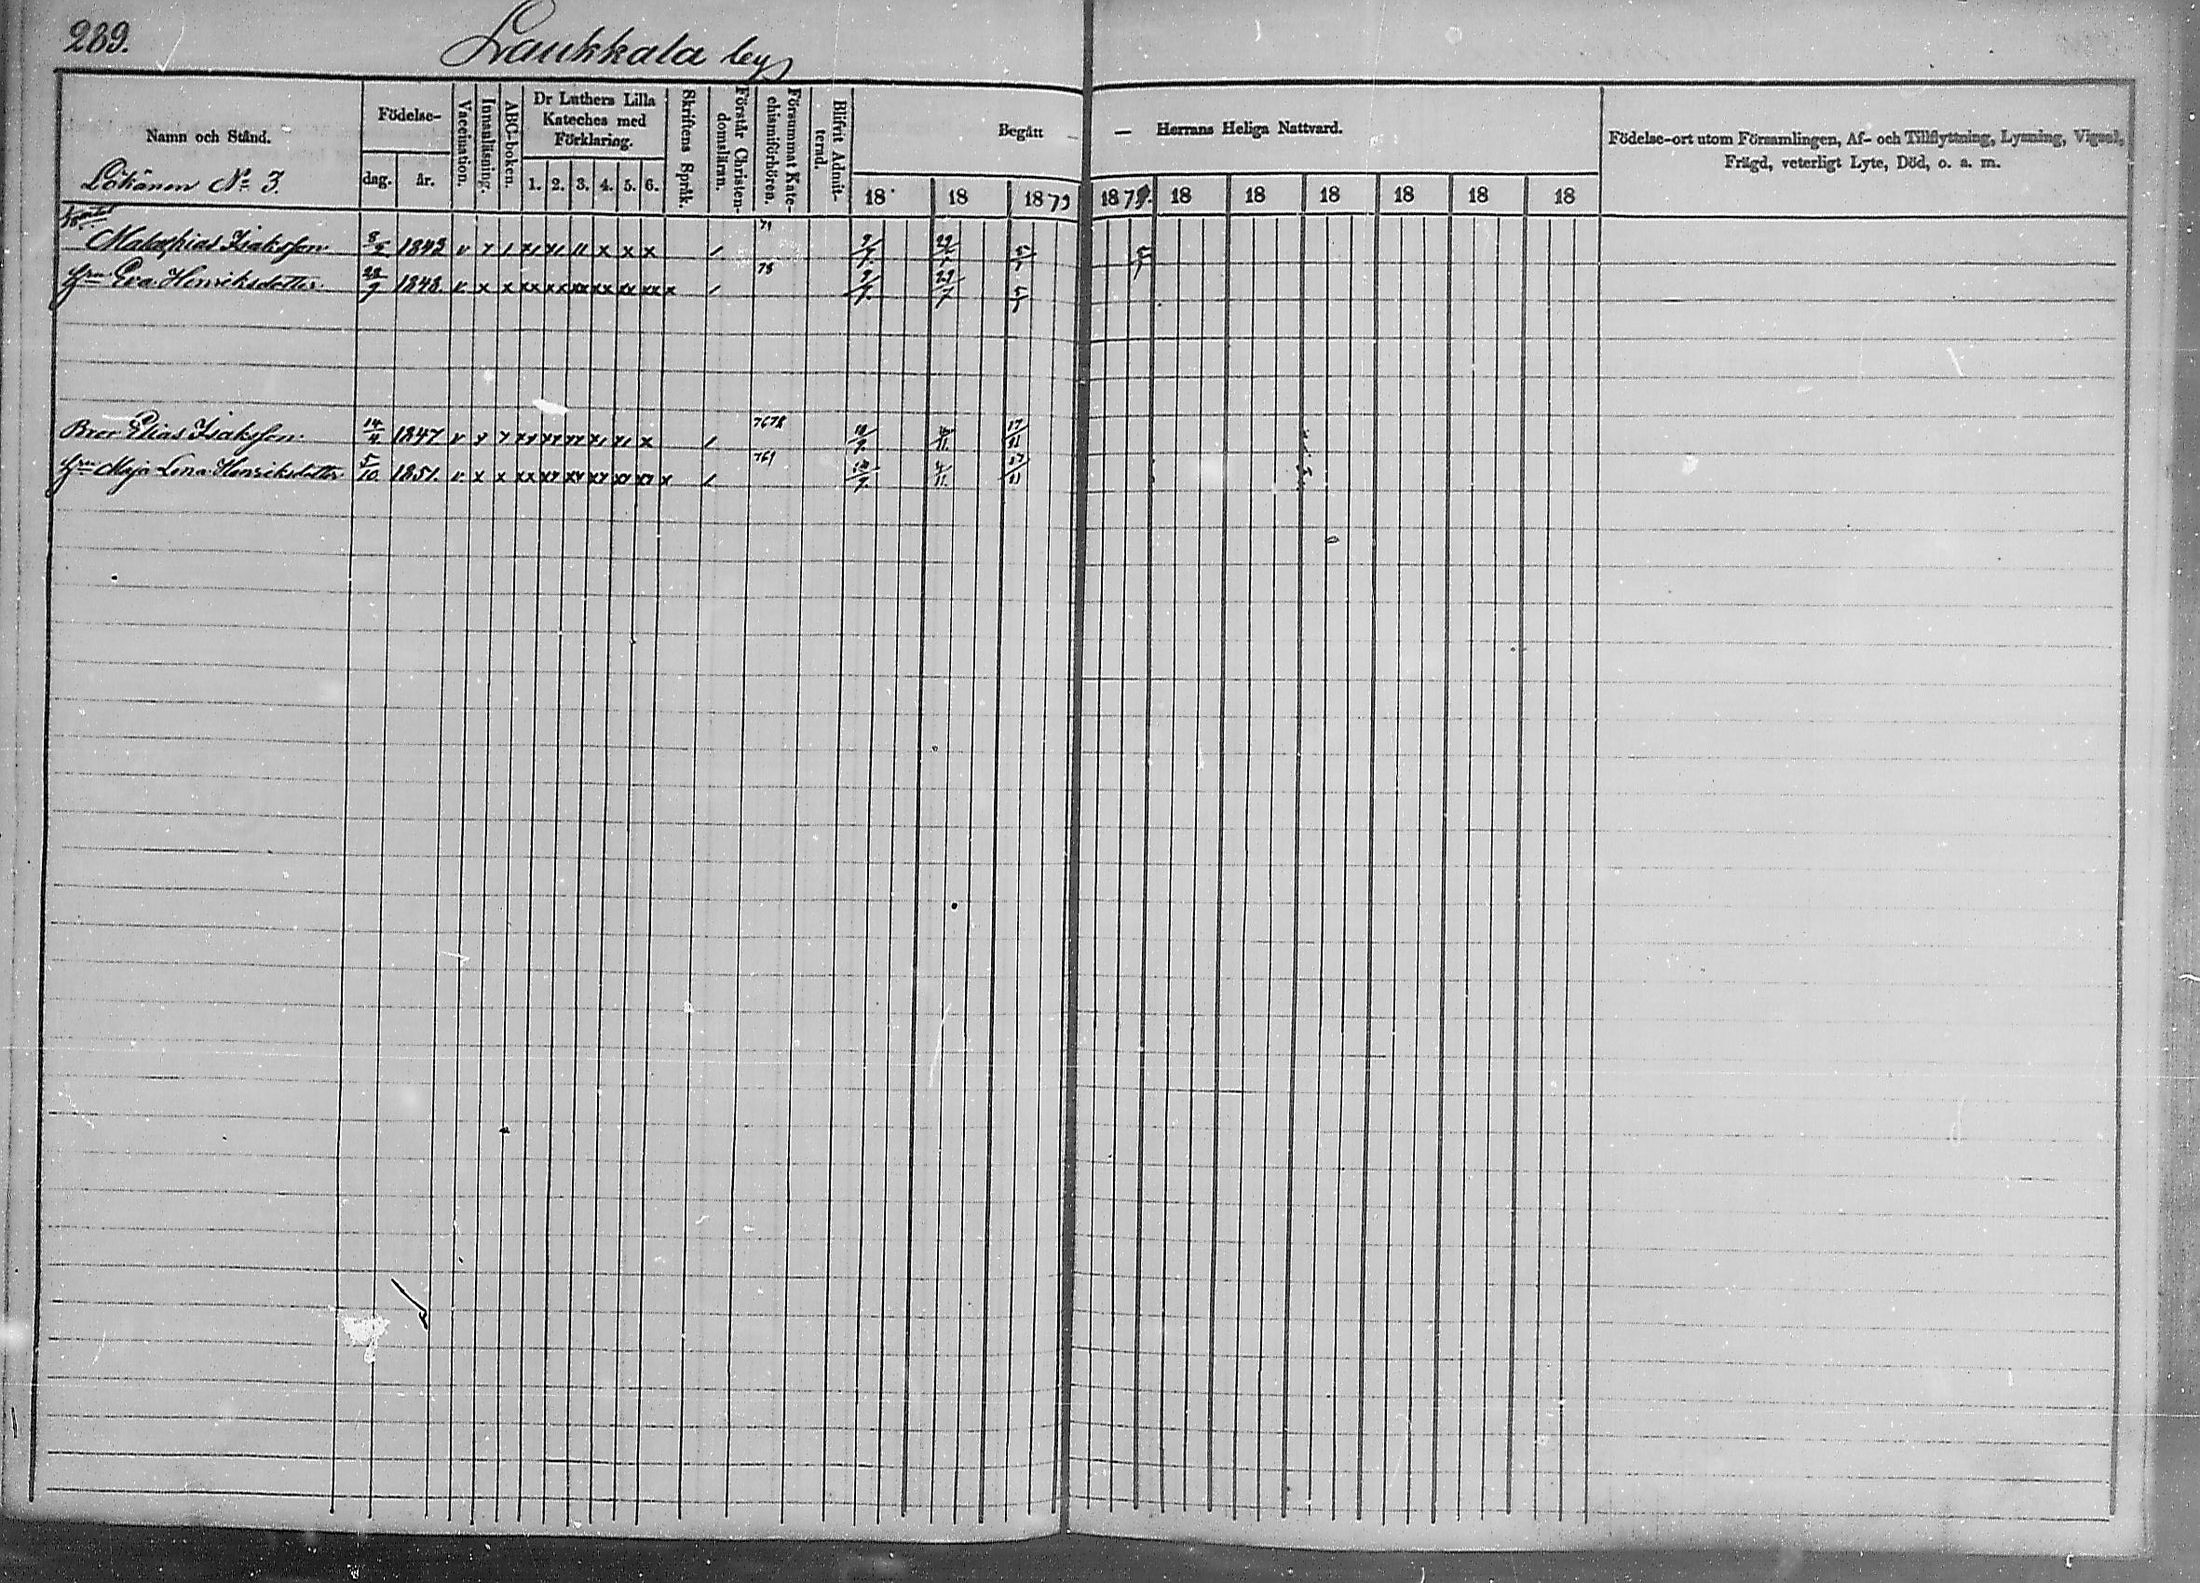 289.
Laukkala by
Namn och Stånd.
Födelse-
dag.
år.
Vaccination.
Innanläsning.
ABC-boken.
Dr Luthers Lilla
Kateches med
Förklaring.
1. 2. 3. 4. 5. 6.
Skriftens Språk.
Förstår Christen-
domsläran.
Försummat Kate-
chismiförhören.
Blifvit Admit-
terad.
Begått — — Herrans Heliga Nattvard.
18 18 1879 1879. 18 18 18 18 18 18
Födelse-ort utom Församlingen, Af- och Tillflyttning, Lysning, Vigsel,
Frägd, veterligt Lyte, Död, o. a. m.
Lökänen No 3.
79
Isaksson 1843 v x x x
78
Hru Eva Henriksdotter 28/9 1848. v. x x xx xx xx xx xx xx x
7678
Bror Elias Isaksson. 14/4 1847. v 17/11
769
Hru Maja Lena Henriksdotter 5/10. 1851. v. x x 17/11